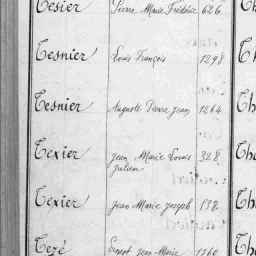 Tesier Pierre Marie Frédéric 626
Tesnier Louis François 1298
Tesnier Auguste Pierre Jean 1264
Texier Jean Marie Louis 328
Julien
Texier Jean Marie Joseph 138
Tezé Ernest Jean Marie 1260